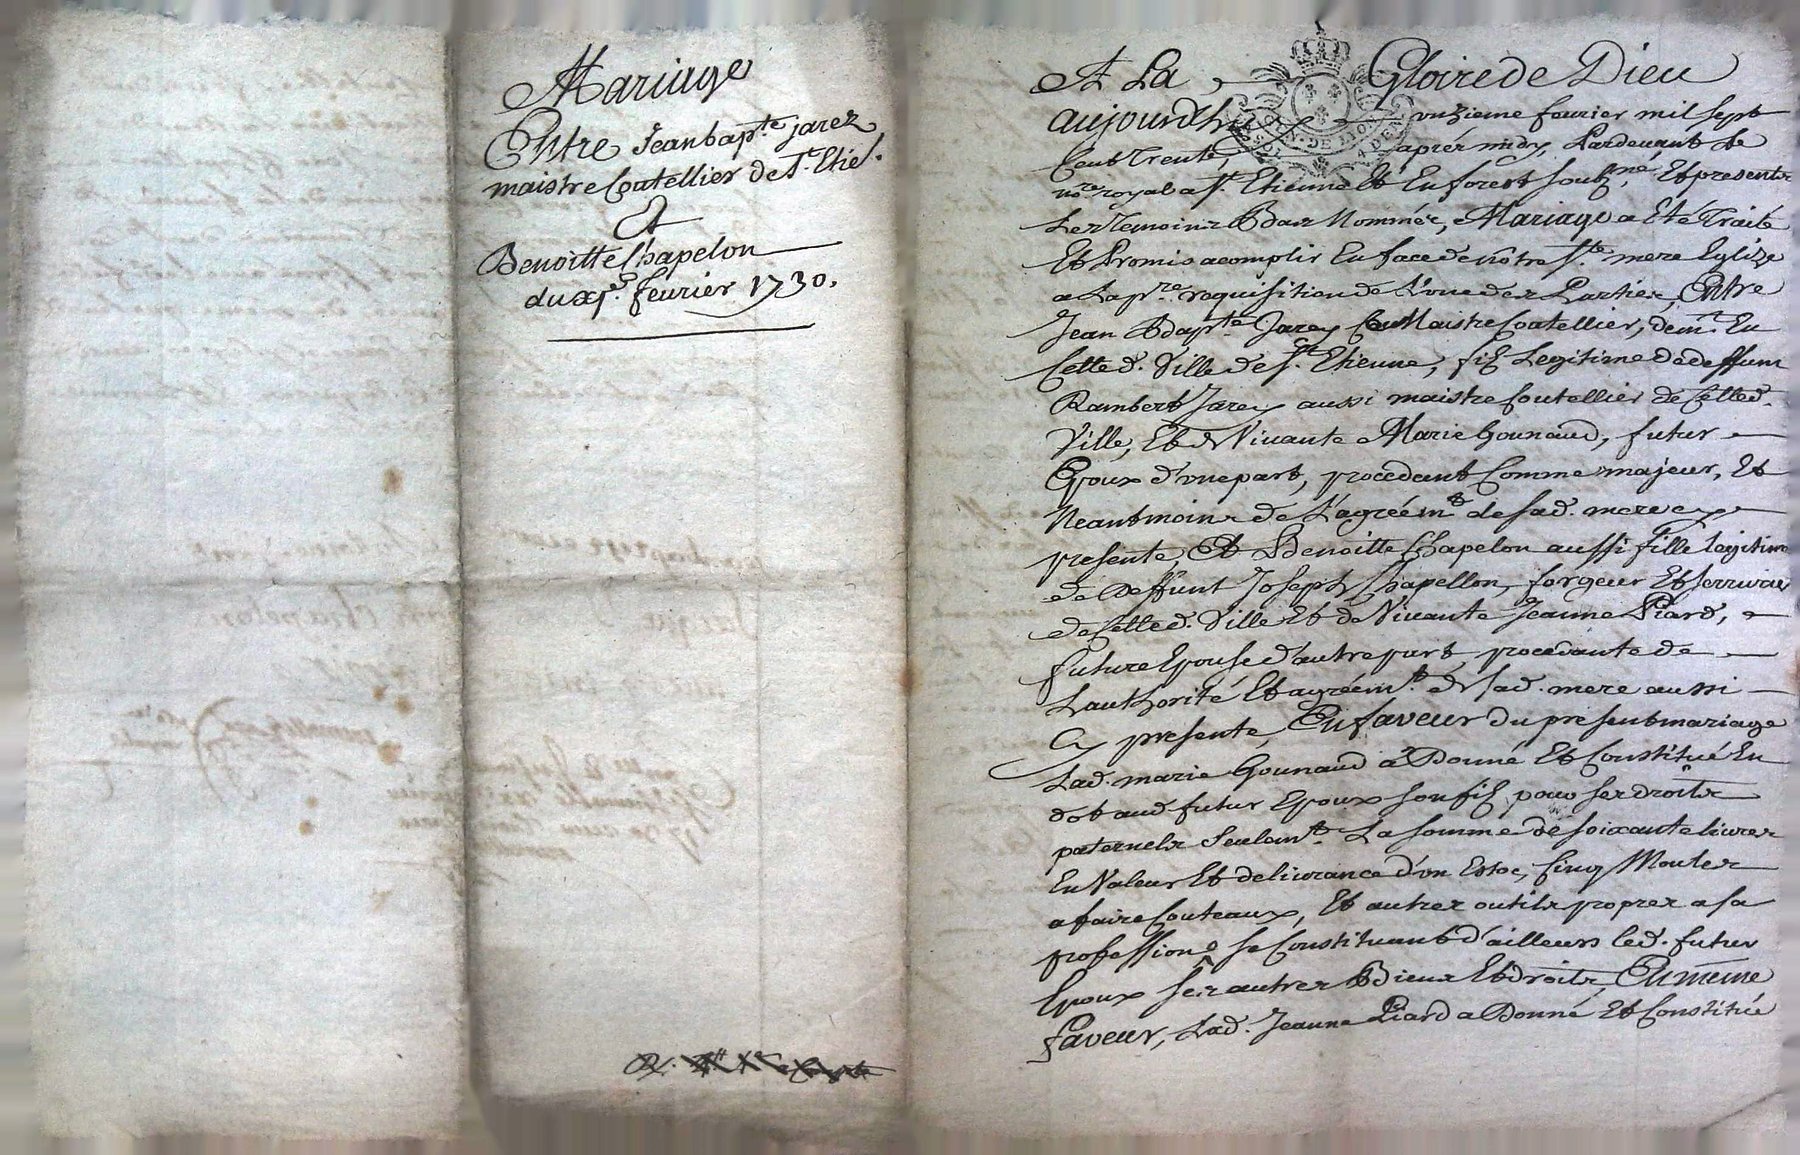 Mariage
Entre Jean bap.te jarez
maistre Coutellier de St. Etie.
Et
Benoitte Chapelon
du xje. feurier 1730.
A La Gloire de Dieu
aujourdhuy onzieme feurier mil sept
Cent Trente, aprés midy, Pardeuant le
no.re royal a St. Etienne Et En forest soubz.né, Et presents
Les Temoins Bas Nommés, Mariage a Eté Traité
Et Promis acomplir En face de nôtre Ste. mere Eglize
a La pre. requisition de L'une des Parties, Entre
Jean Bapte. Jarey Maistre Coutellier, demt. En
Cette d. Ville de St. Etienne, fils Legitime de deffunt
Rambert Jarey aussi maistre Coutellier de Cette d.
Ville, Et de Viuante Marie Gounaud, futur
Epoux d'une part, procedant Comme majeur, Et
Neantmoins de L'agréemt. de sad. mere cy
presente, Et Benoitte Chapelon aussi fille legitime
de Deffunt Joseph Chapellon, forgeur Et serrurier
de Cette d. Ville Et de Viuante Jeanne Piard,
future Epouse d'autre part, procedante de
Lauthorité Et agréemt. de sad. mere aussi
cy presente, En faveur du present mariage
Lad. marie Gounaud a Donné Et Constitué En
dot aud. futur Epoux son fils pour ses droits
paternels seulemt. La somme de soixante liures
En Valeur Et deliurance d'un Estoc, Cinq Moules
a faire Couteaux, Et autres outils propres a sa
profession se Constituant d'ailleurs led. futur
Epoux ses autres Biens Et droits, En même
faveur, Lad. Jeanne Piard a Donné Et Constitué